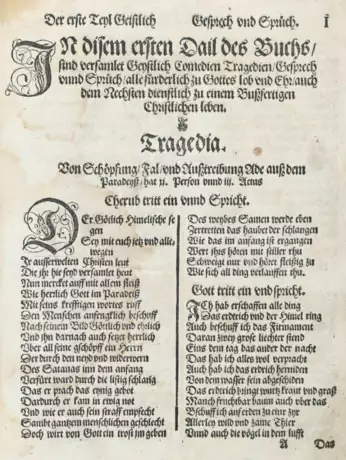 Der erste Teyl Geistlich Gesprech vnd Sprüch. 1
IN disem ersten Dail des Buchs/
sind versamlet Geystlich Comedien Tragedien/Gesprech
vnnd Sprüch/alle fürderlich zu Gottes lob vnd Ehr/auch
dem Nechsten dienstlich zu einem Bußfertigen
Christlichen leben.
Tragedia.
Von Schöpfung/Fal/vnd Außtreibung Ade auß dem
Paradeyß/hat xi. Person vnnd iii. Actus
Cherub tritt ein vnnd Spricht.
DEr Götlich Himelische se
gen
Sey mit euch jetz vnd alle-
wegen
Ir ausserwelten Christen leut
Die jhr hie seyd versamlet heut
Nun mercket auff mit allem fleiß
Wie herrlich Gott im Paradeiß
Mit seines krefftigen wortes ruff
Den Menschen anfengklich beschuff
Nach seinem Bild Götlich vnd ehrlich
Vnd jhn darnach auch setzet herrlich
Vber all seine gschöpff ein Herrn
Der durch den neyd vnd widerwern
Des Satanas inn dem anfang
Verfürt ward durch die listig schlang
Das er prach das eynig gebot
Dardurch er kam in ewig not
Vnd wie er auch sein straff empfecht
Sambt gantzem menschlichen geschlecht
Doch wirt von Gott ein trost jm geben
Des weybes Samen werde eben
Zertretten das haubet der schlangen
Wie das im anfang ist ergangen
Wert jhrs hören mit stiller rhu
Schweigt nur vnd höret fleissig zu
Wie sich all ding verlauffen thu.
Gott tritt ein vnd spricht.
ICh hab erschaffen alle ding
Das erdtrich vnd der Himel ring
Auch beschuff ich das Firmament
Daran zwey grosse liechter stend
Eins dem tag das ander der nacht
Das hab ich alles wol verpracht
Auch hab ich das erdrich herniden
Von dem wasser fein abgeschiden
Das erdrich bringt wurtz kraut vnd graß
Manch fruchtbar baum auch vber das
Bschuff ich auf erden zu eine zyr
Allerley wild vnd zame Thier
Vnnd auch die vögel in dem lufft
A Das